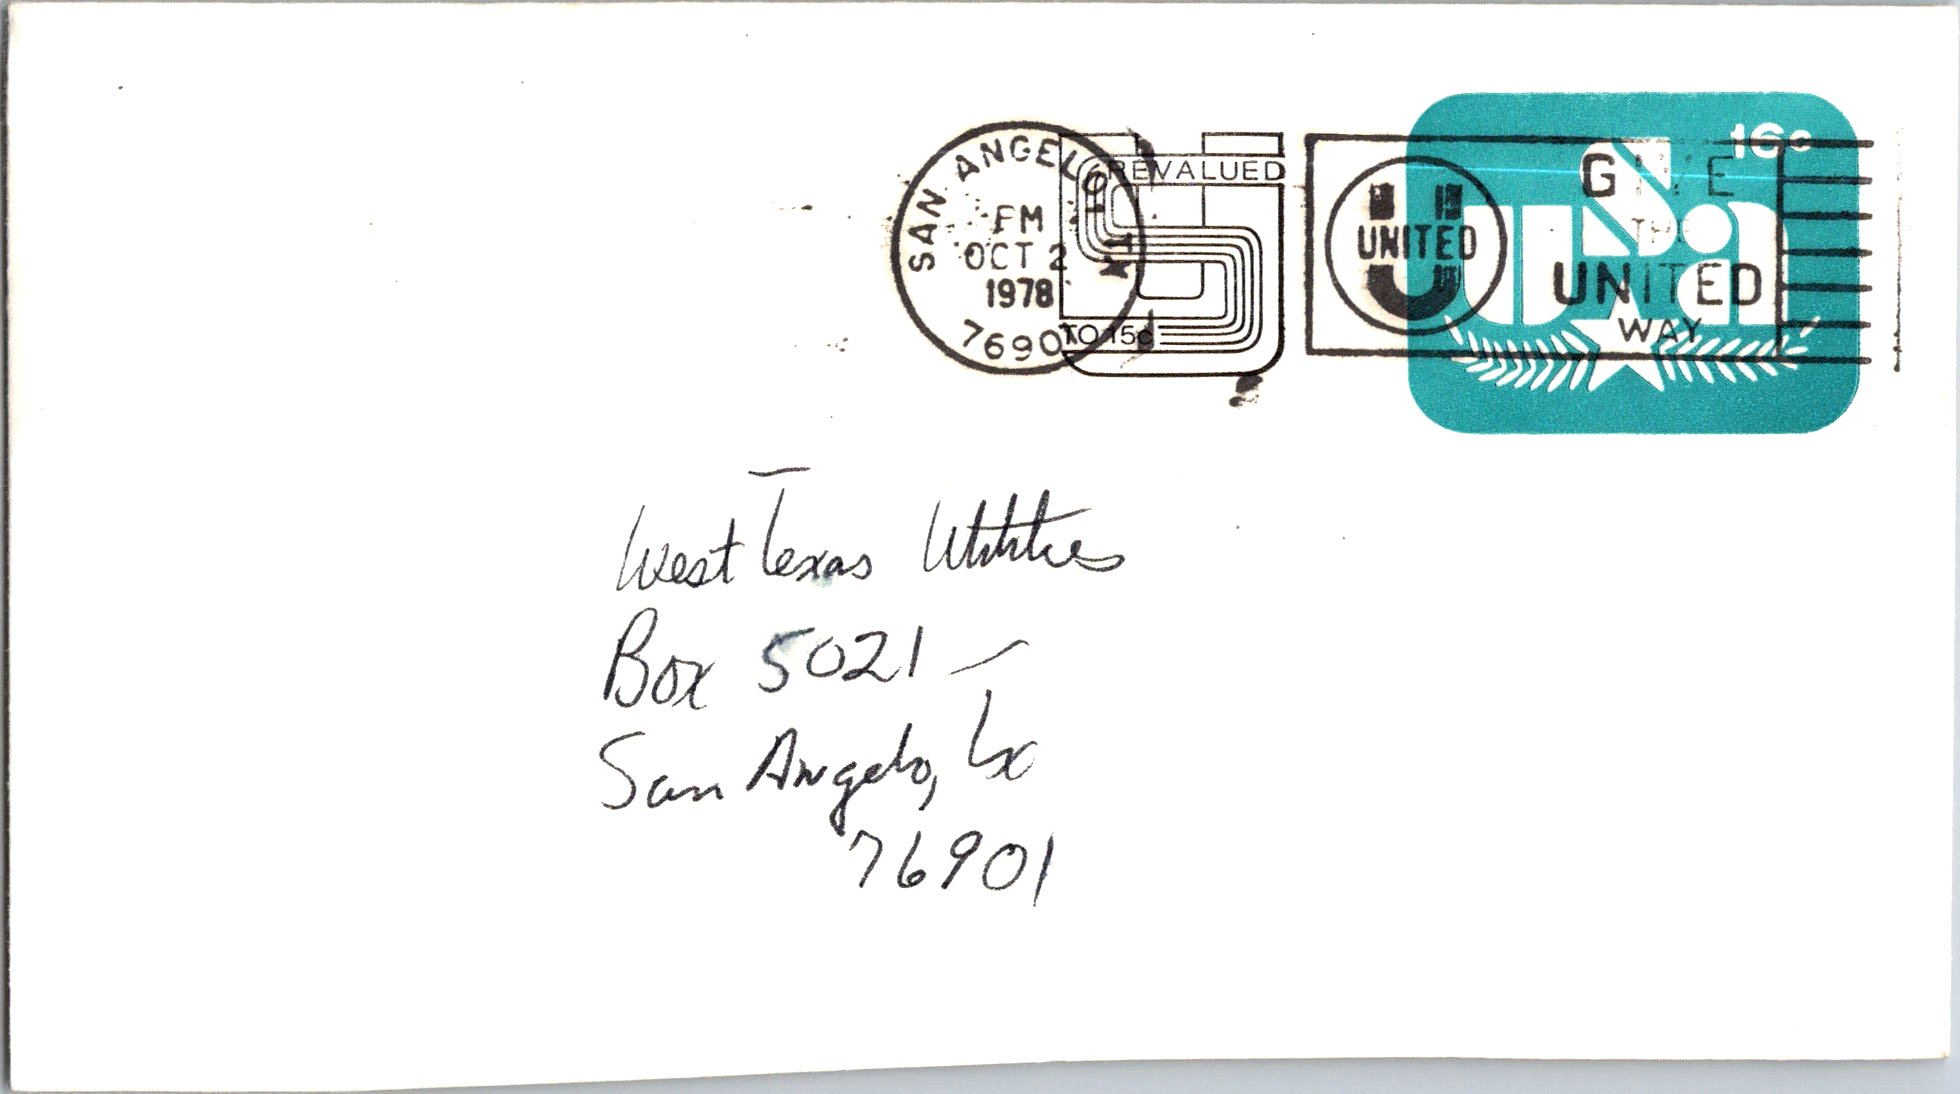 SAN ANGELO TX
PM
OCT 2
1978
76901
REVALUED
TO 15¢
UNITED
GIVE
THE
UNITED
WAY
16c
USA
West Texas Utilities
Box 5021
San Angelo, Tx
76901